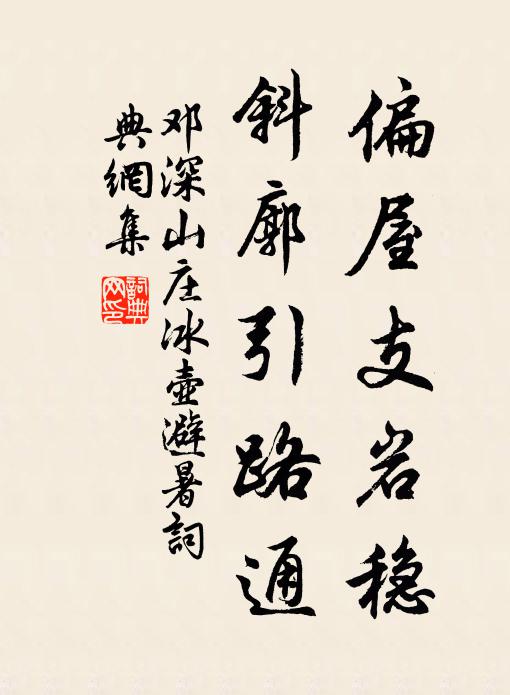 偏屋支岩稳
斜廓引路通
邓深山庄冰壶避暑词
典網集
詞典网印